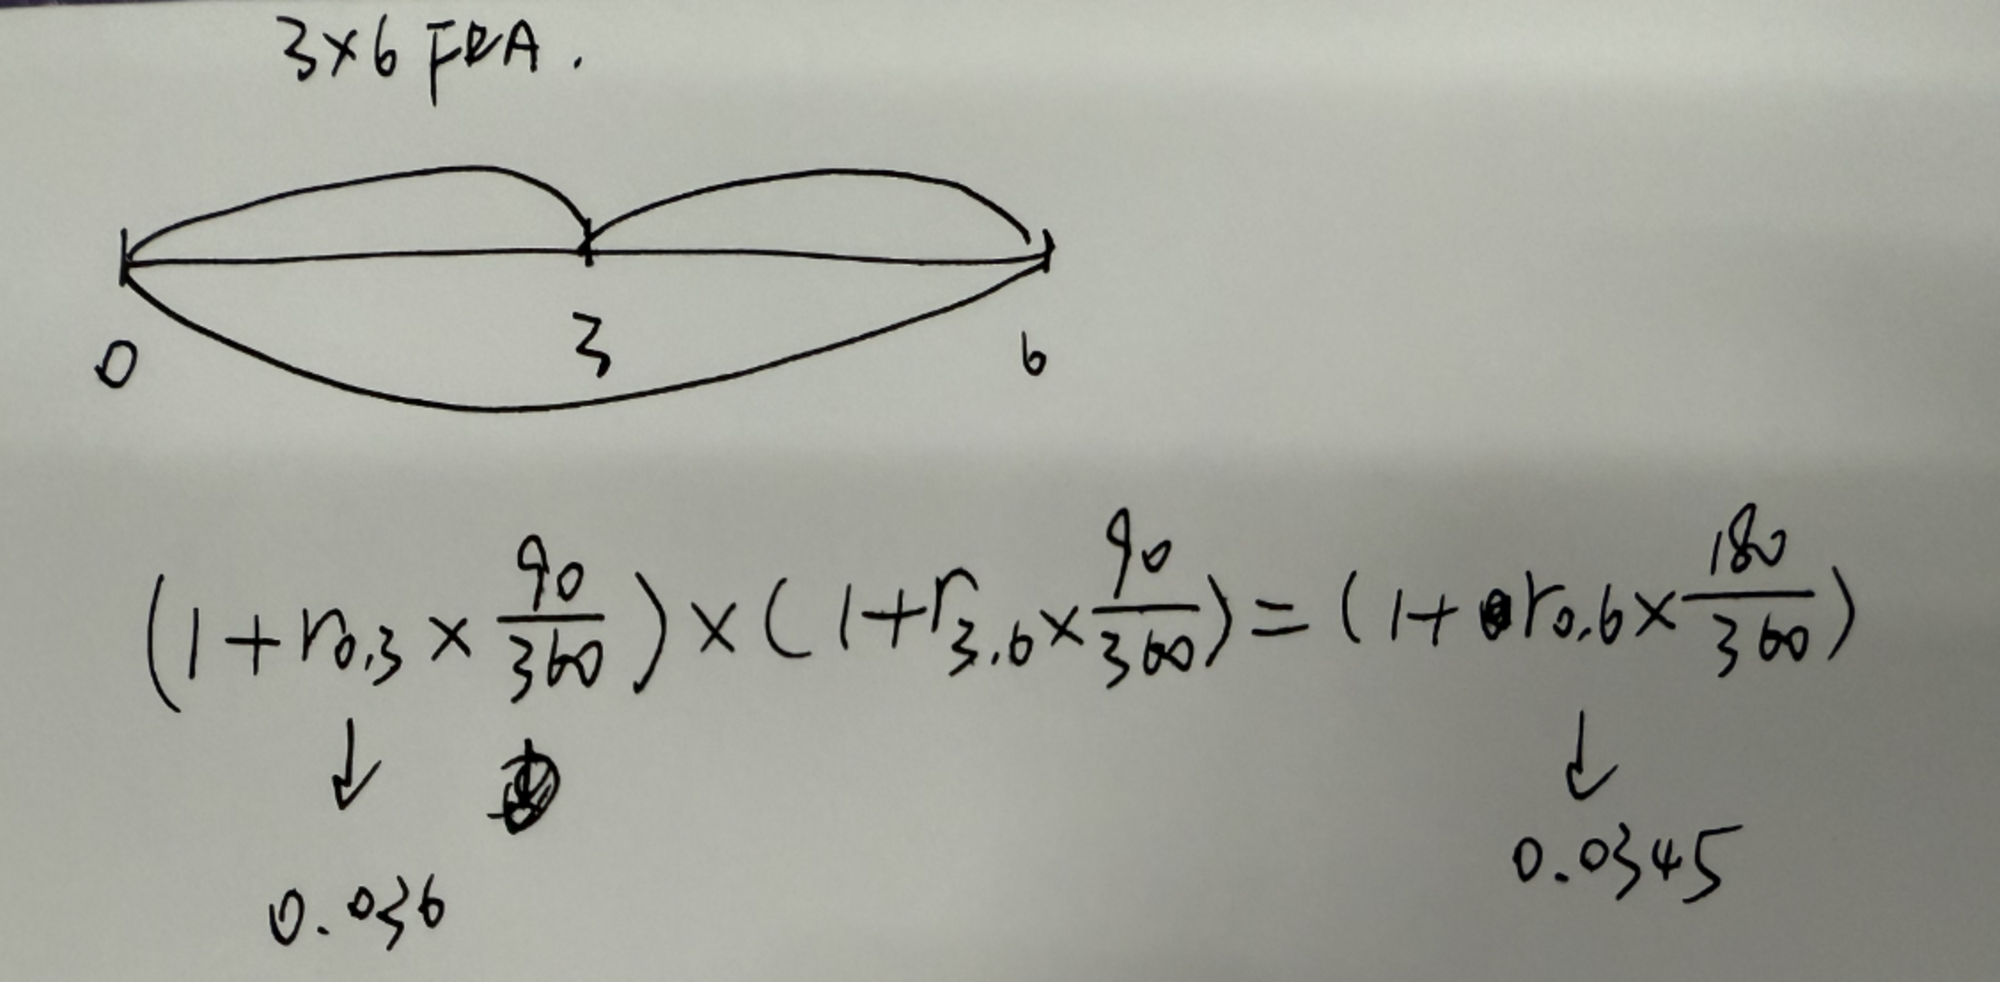 3×6 FRA.
0 3 6
(1+r0,3 × 90/360) × (1+r3,6 × 90/360) = (1+ r0,6 × 180/360)
↓ ↓
0.036 0.0345